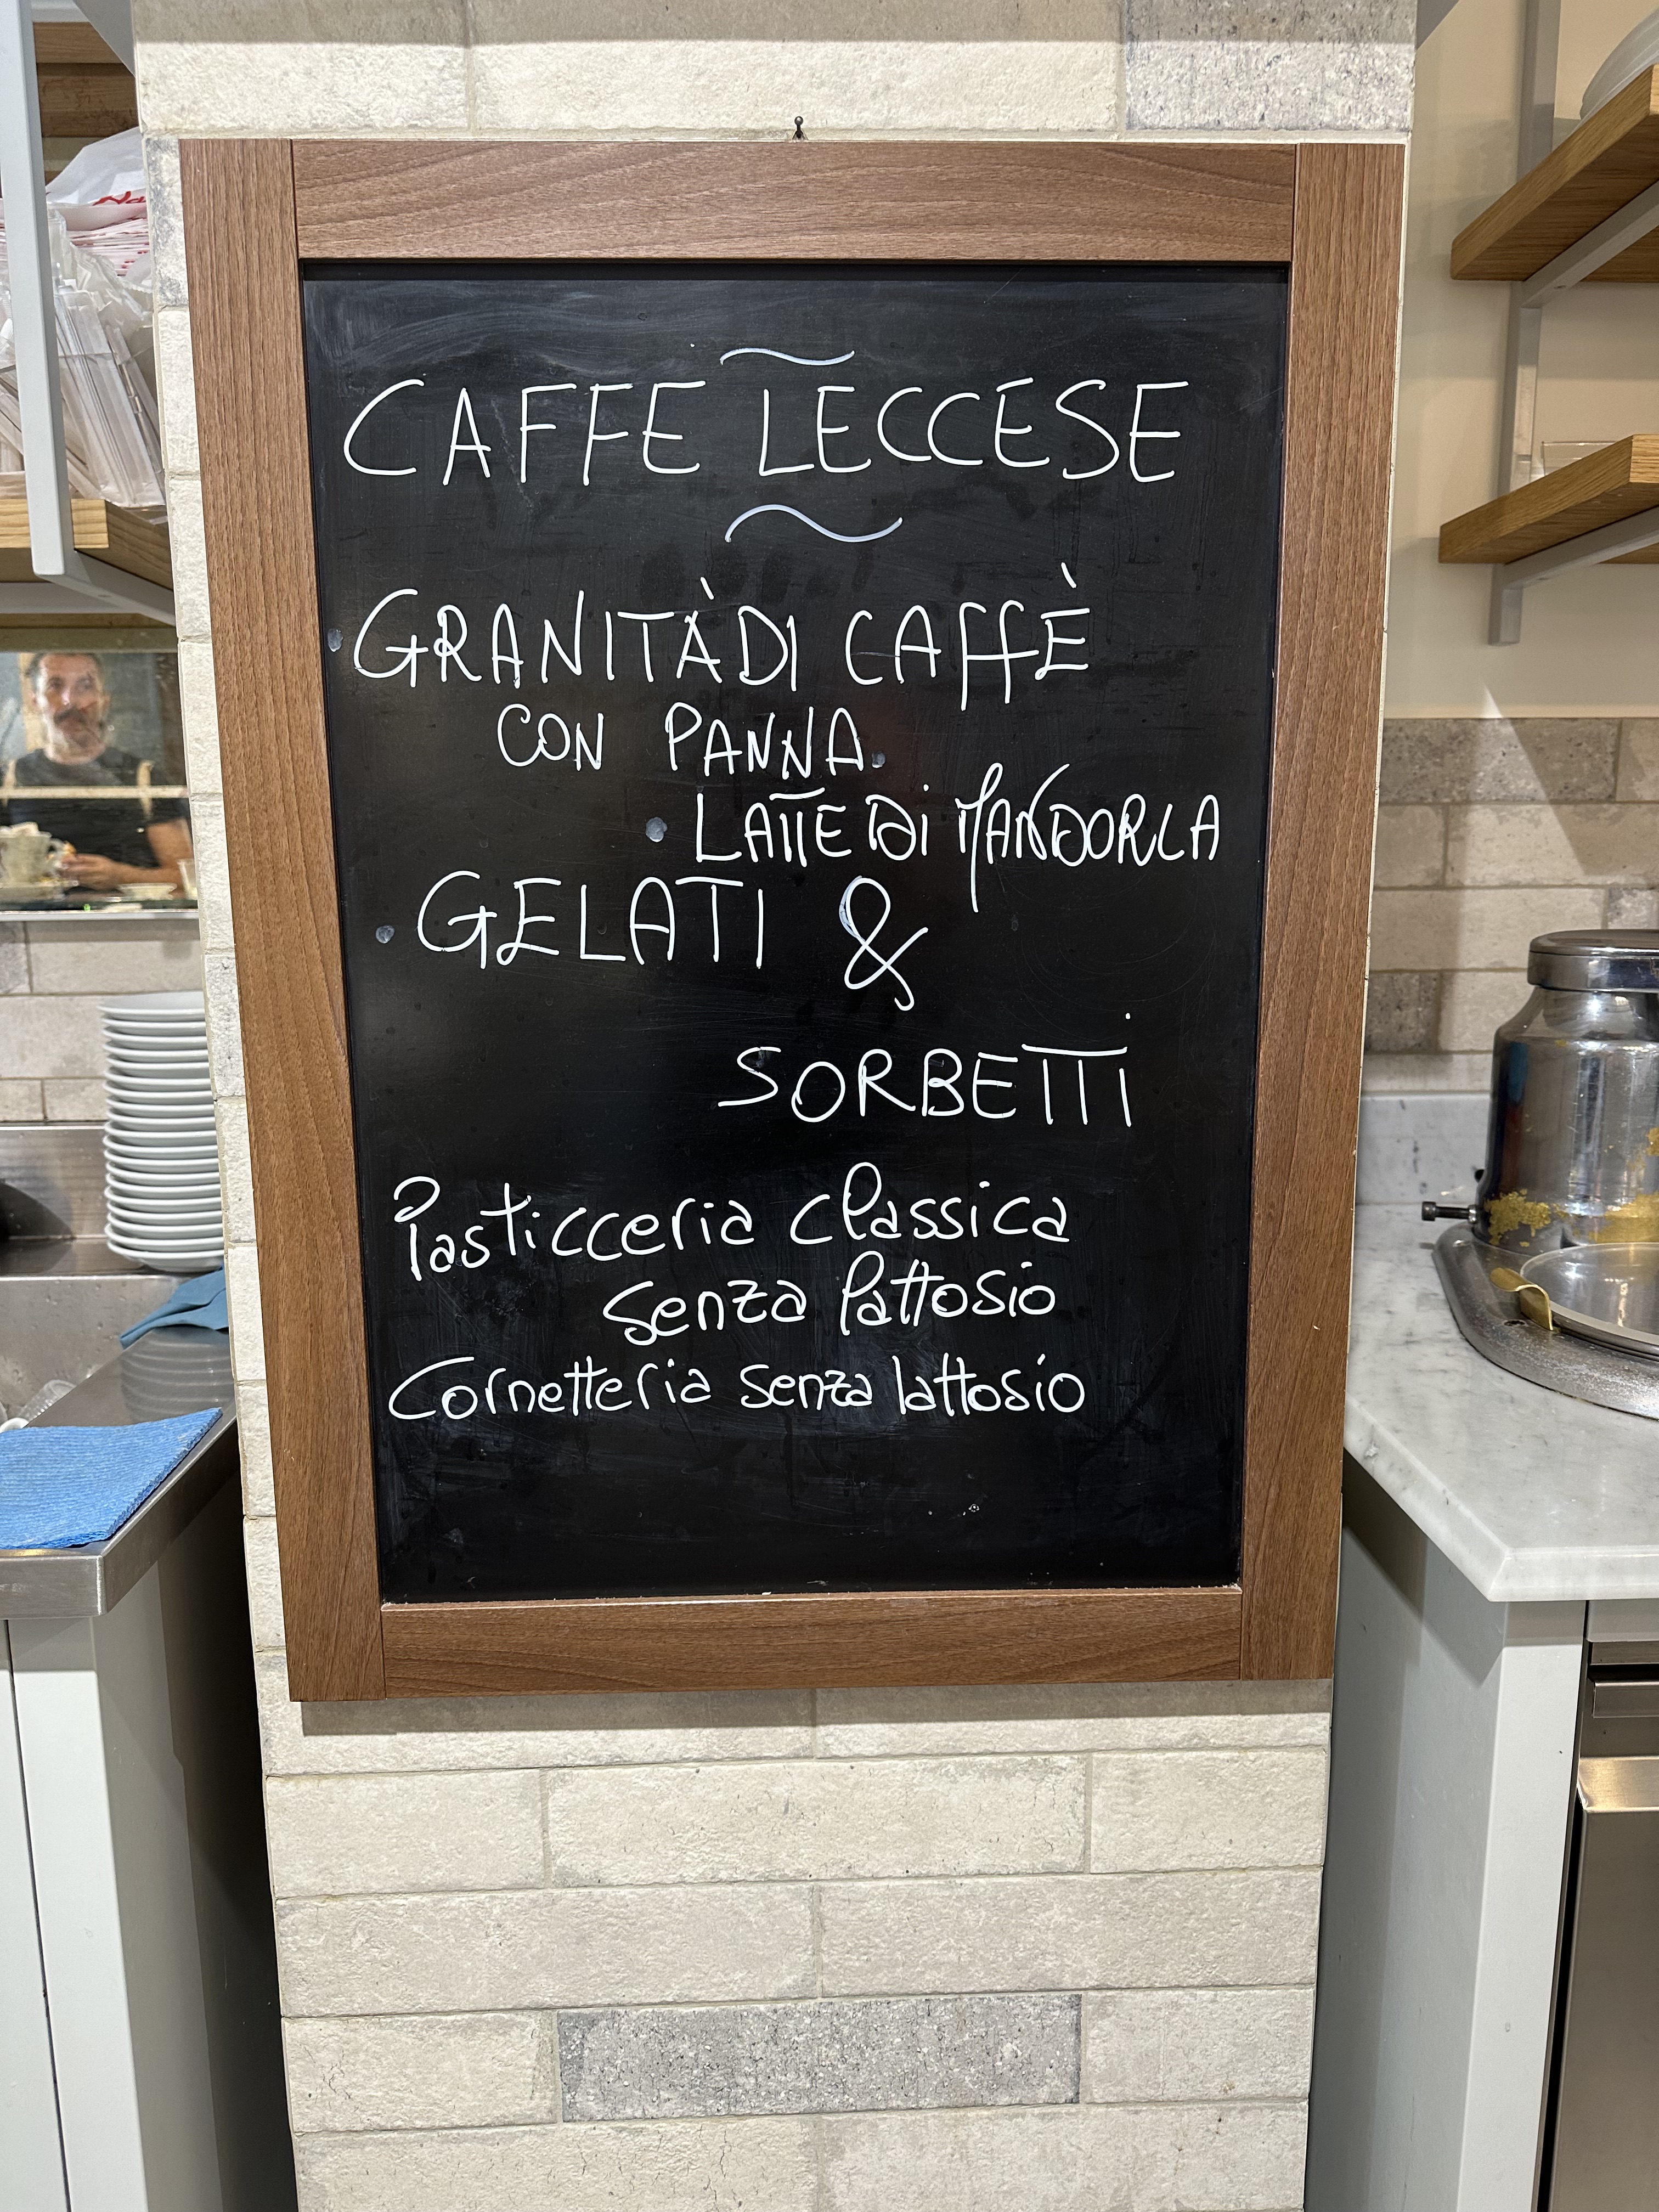 CAFFE LECCESE
GRANITÀ DI CAFFÈ
CON PANNA
LATTE DI MANDORLA
GELATI &
SORBETTI
Pasticceria classica
senza lattosio
Cornetteria senza lattosio